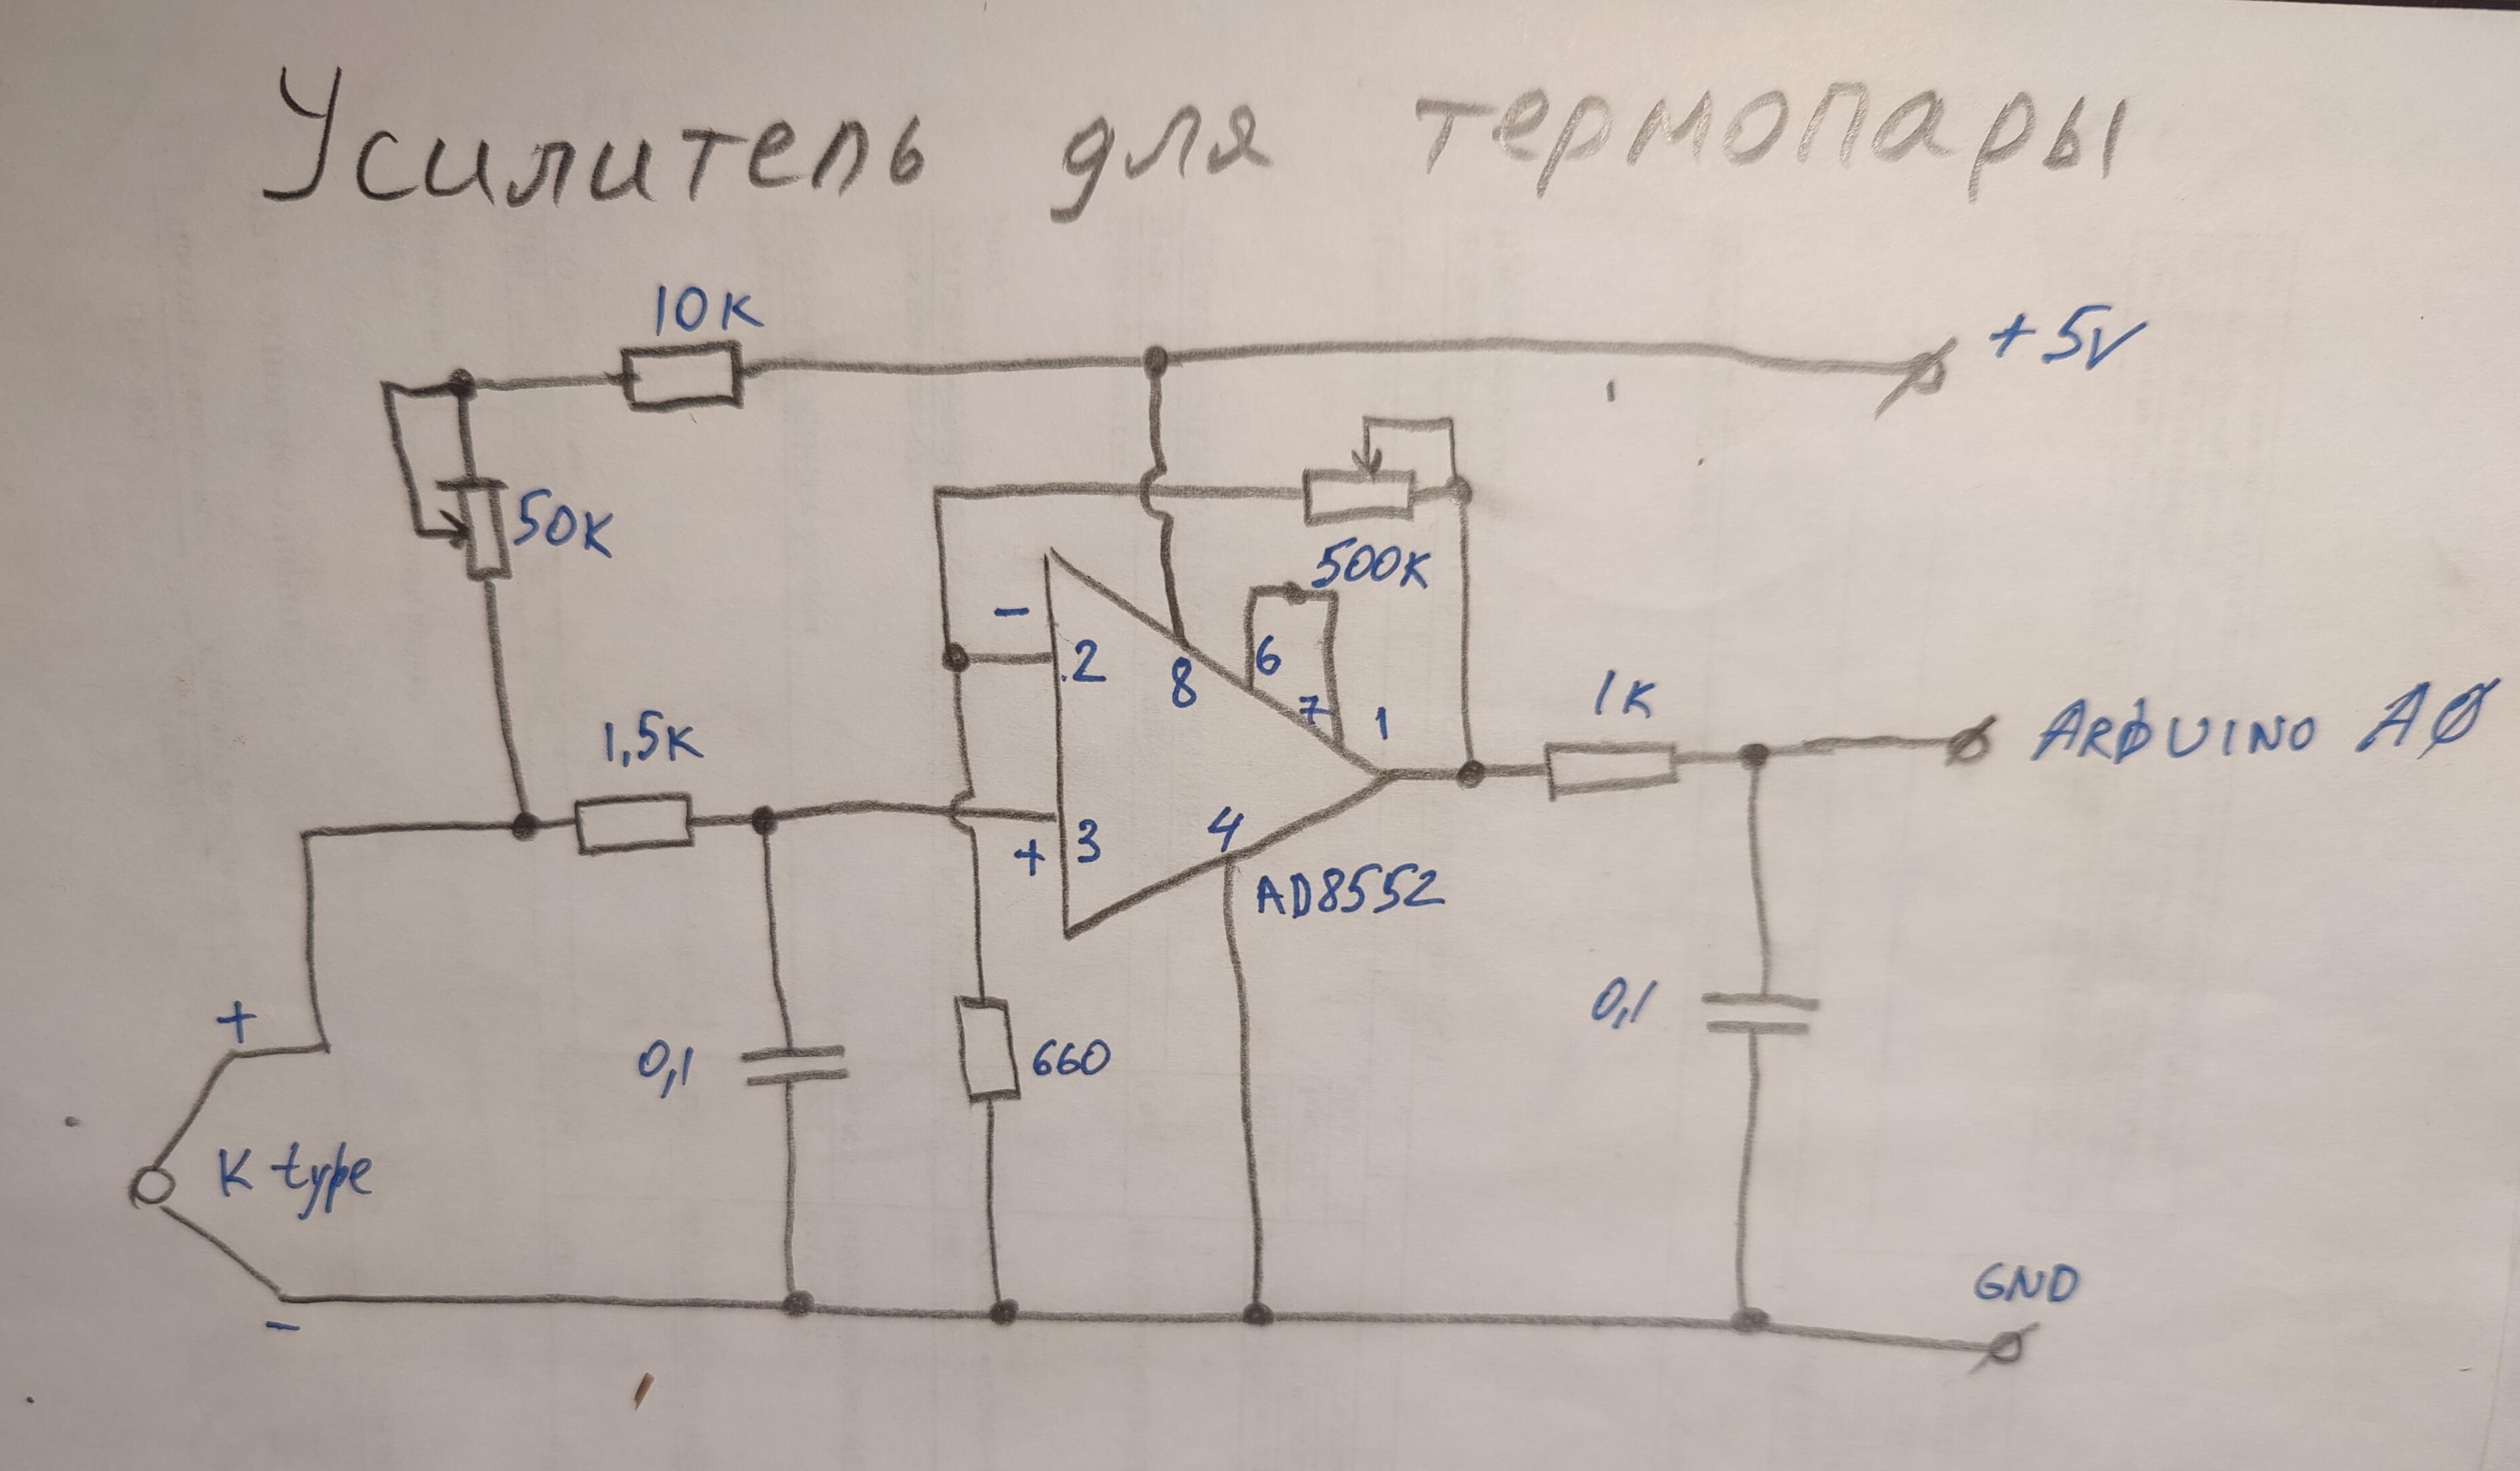 Усилитель для термопары
10K
+5V
50K
500K
-
2
8
6
7
1
1K
ARDUINO A0
1,5K
+
3
4
AD8552
+
0,1
0,1
660
K type
GND
-